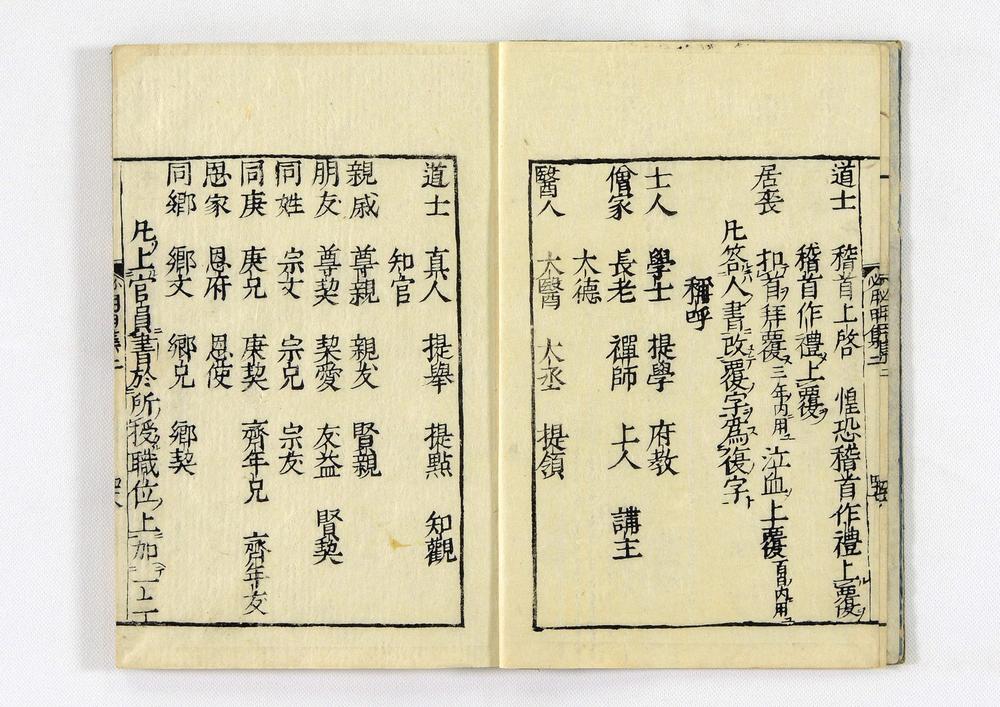 道士 稽首上啓 惶恐稽首作禮上覆
稽首作禮上覆
居喪 扣首拜覆 三年内用 泣血上覆 百日内用
凡答人書改覆字爲復字
稱呼
士人 學士 提學 府教
僧家 長老 禪師 上人 講主
太德
醫人 太醫 太丞 提領
道士 真人 提舉 提點 知觀
知宮
親戚 尊親 親友 賢親
朋友 尊契 契愛 友益 賢契
同姓 宗丈 宗兄 宗友
同庚 庚兄 庚契 齊年兄 齊年友
恩家 恩府 恩使
同鄉 鄉丈 鄉兄 鄉契
凡上官員書於所授職位上加